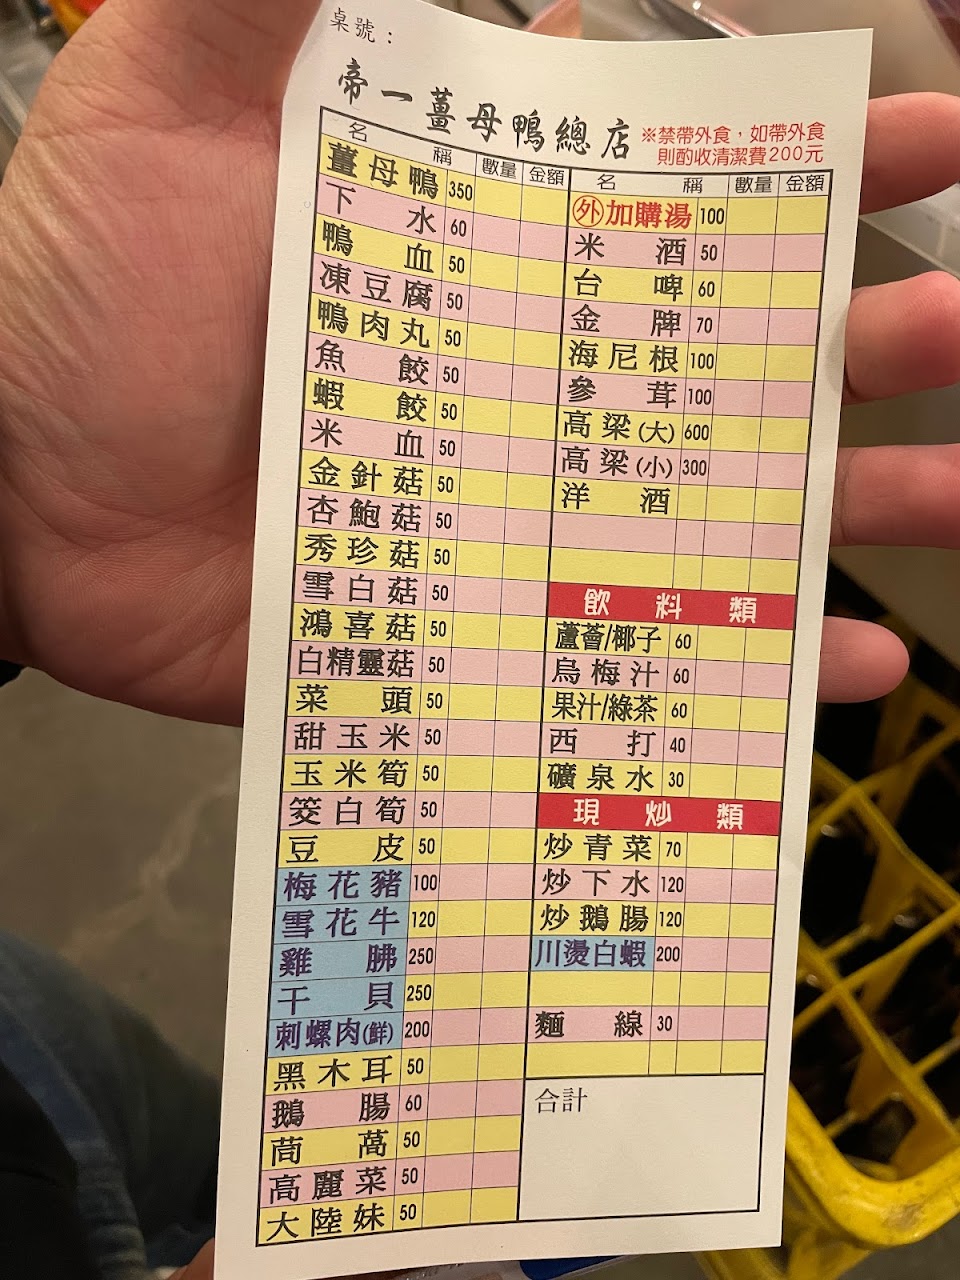 桌號：
帝一薑母鴨總店
※禁帶外食，如帶外食
則酌收清潔費200元
名稱 數量 金額
薑母鴨 350
下水 60
鴨血 50
凍豆腐 50
鴨肉丸 50
魚餃 50
蝦餃 50
米血 50
金針菇 50
杏鮑菇 50
秀珍菇 50
雪白菇 50
鴻喜菇 50
白精靈菇 50
菜頭 50
甜玉米 50
玉米筍 50
筊白筍 50
豆皮 50
梅花豬 100
雪花牛 120
雞胇 250
干貝 250
刺螺肉(鮮) 200
黑木耳 50
鵝腸 60
茼萵 50
高麗菜 50
大陸妹 50
名稱 數量 金額
外加購湯 100
米酒 50
台啤 60
金牌 70
海尼根 100
參茸 100
高梁(大) 600
高梁(小) 300
洋酒
飲料類
蘆薈/椰子 60
烏梅汁 60
果汁/綠茶 60
西打 40
礦泉水 30
現炒類
炒青菜 70
炒下水 120
炒鵝腸 120
川燙白蝦 200
麵線 30
合計